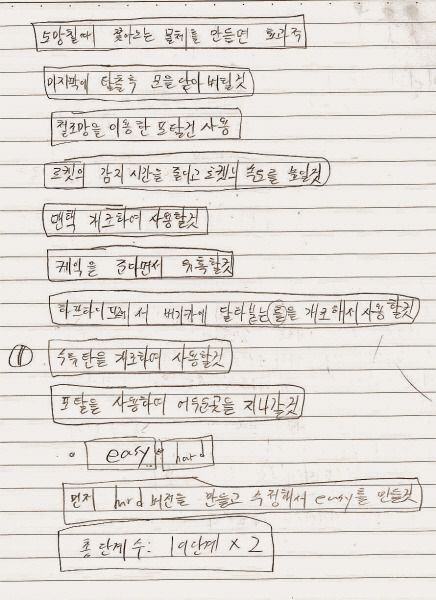 도망칠때 쫓아오는 물체를 만들면 효과적
마지막에 탈출후 문을 닫아 버릴것
철조망을 이용한 포탈건 사용
로켓의 감지 시간을 줄이고 로켓의 속도를 높일것
맨택 개조하여 사용할것
케익을 준다면서 유혹할것
하프라이프에서 버기카에 달라붙는 를 개조해서 사용할것
⑪ 수류탄을 개조하여 사용할것
포탈을 사용하여 어두운곳을 지나갈것
easy hard
먼저 hard 버전을 만들고 수정해서 easy를 만들것
총 단계 수: 19단계 x 2